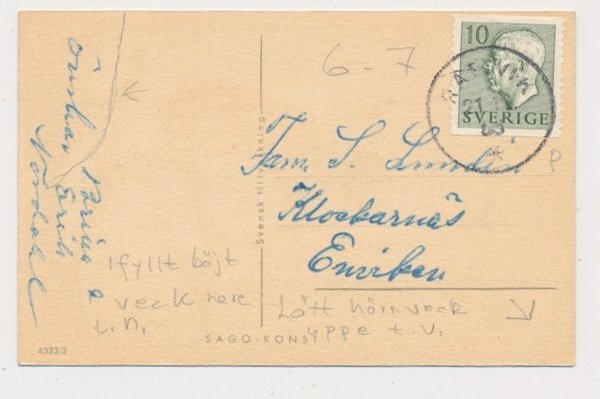 Önskar
Erik
Nordahl
6-7
10
SVERIGE
RÄTTVIK
21
53
Svensk tillverkning
Fam. S. Lundin
P
Klockarnäs
Enviken
Ifyllt böjt
veck nere
t.h.
Lätt hörnveck
uppe t.v.
SAGO-KONST
4323/2